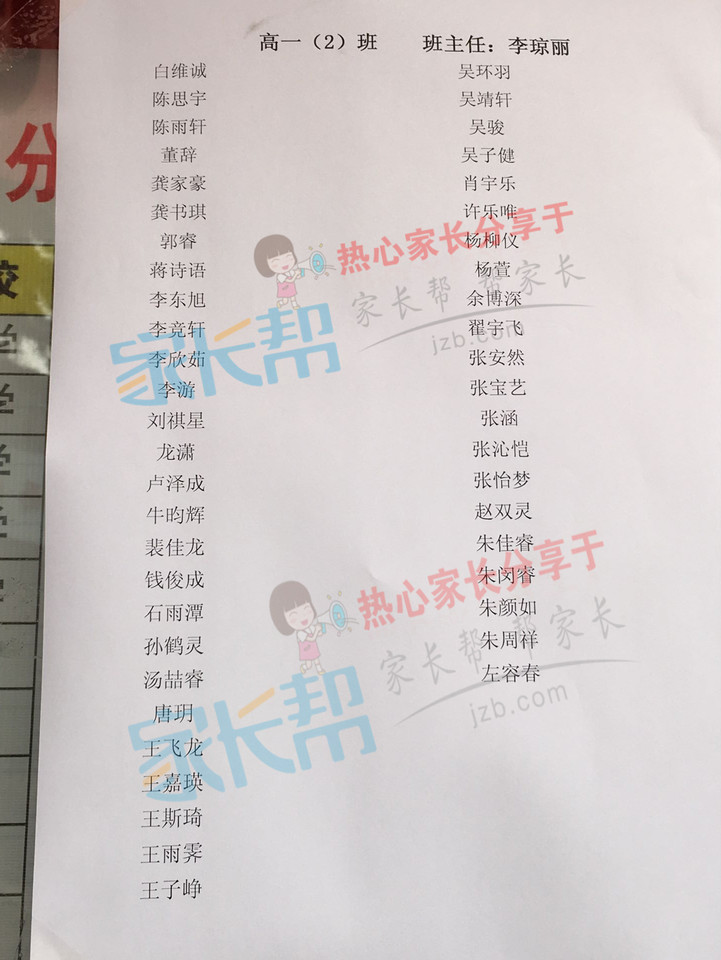 高一（2）班 班主任：李琼丽
白维诚
陈思宇
陈雨轩
董辞
龚家豪
龚书琪
郭睿
蒋诗语
李东旭
李竞轩
李欣茹
李游
刘祺星
龙潇
卢泽成
牛昀辉
裴佳龙
钱俊成
石雨潭
孙鹤灵
汤喆睿
唐玥
王飞龙
王嘉瑛
王斯琦
王雨霁
王子峥
吴环羽
吴靖轩
吴骏
吴子健
肖宇乐
许乐唯
杨柳仪
杨萱
余博深
翟宇飞
张安然
张宝艺
张涵
张沁恺
张怡梦
赵双灵
朱佳睿
朱闵睿
朱颜如
朱周祥
左容春
热心家长分享于
家长帮 帮家长
家长帮
jzb.com
热心家长分享于
家长帮 帮家长
家长帮
jzb.com
分
校
学
学
学